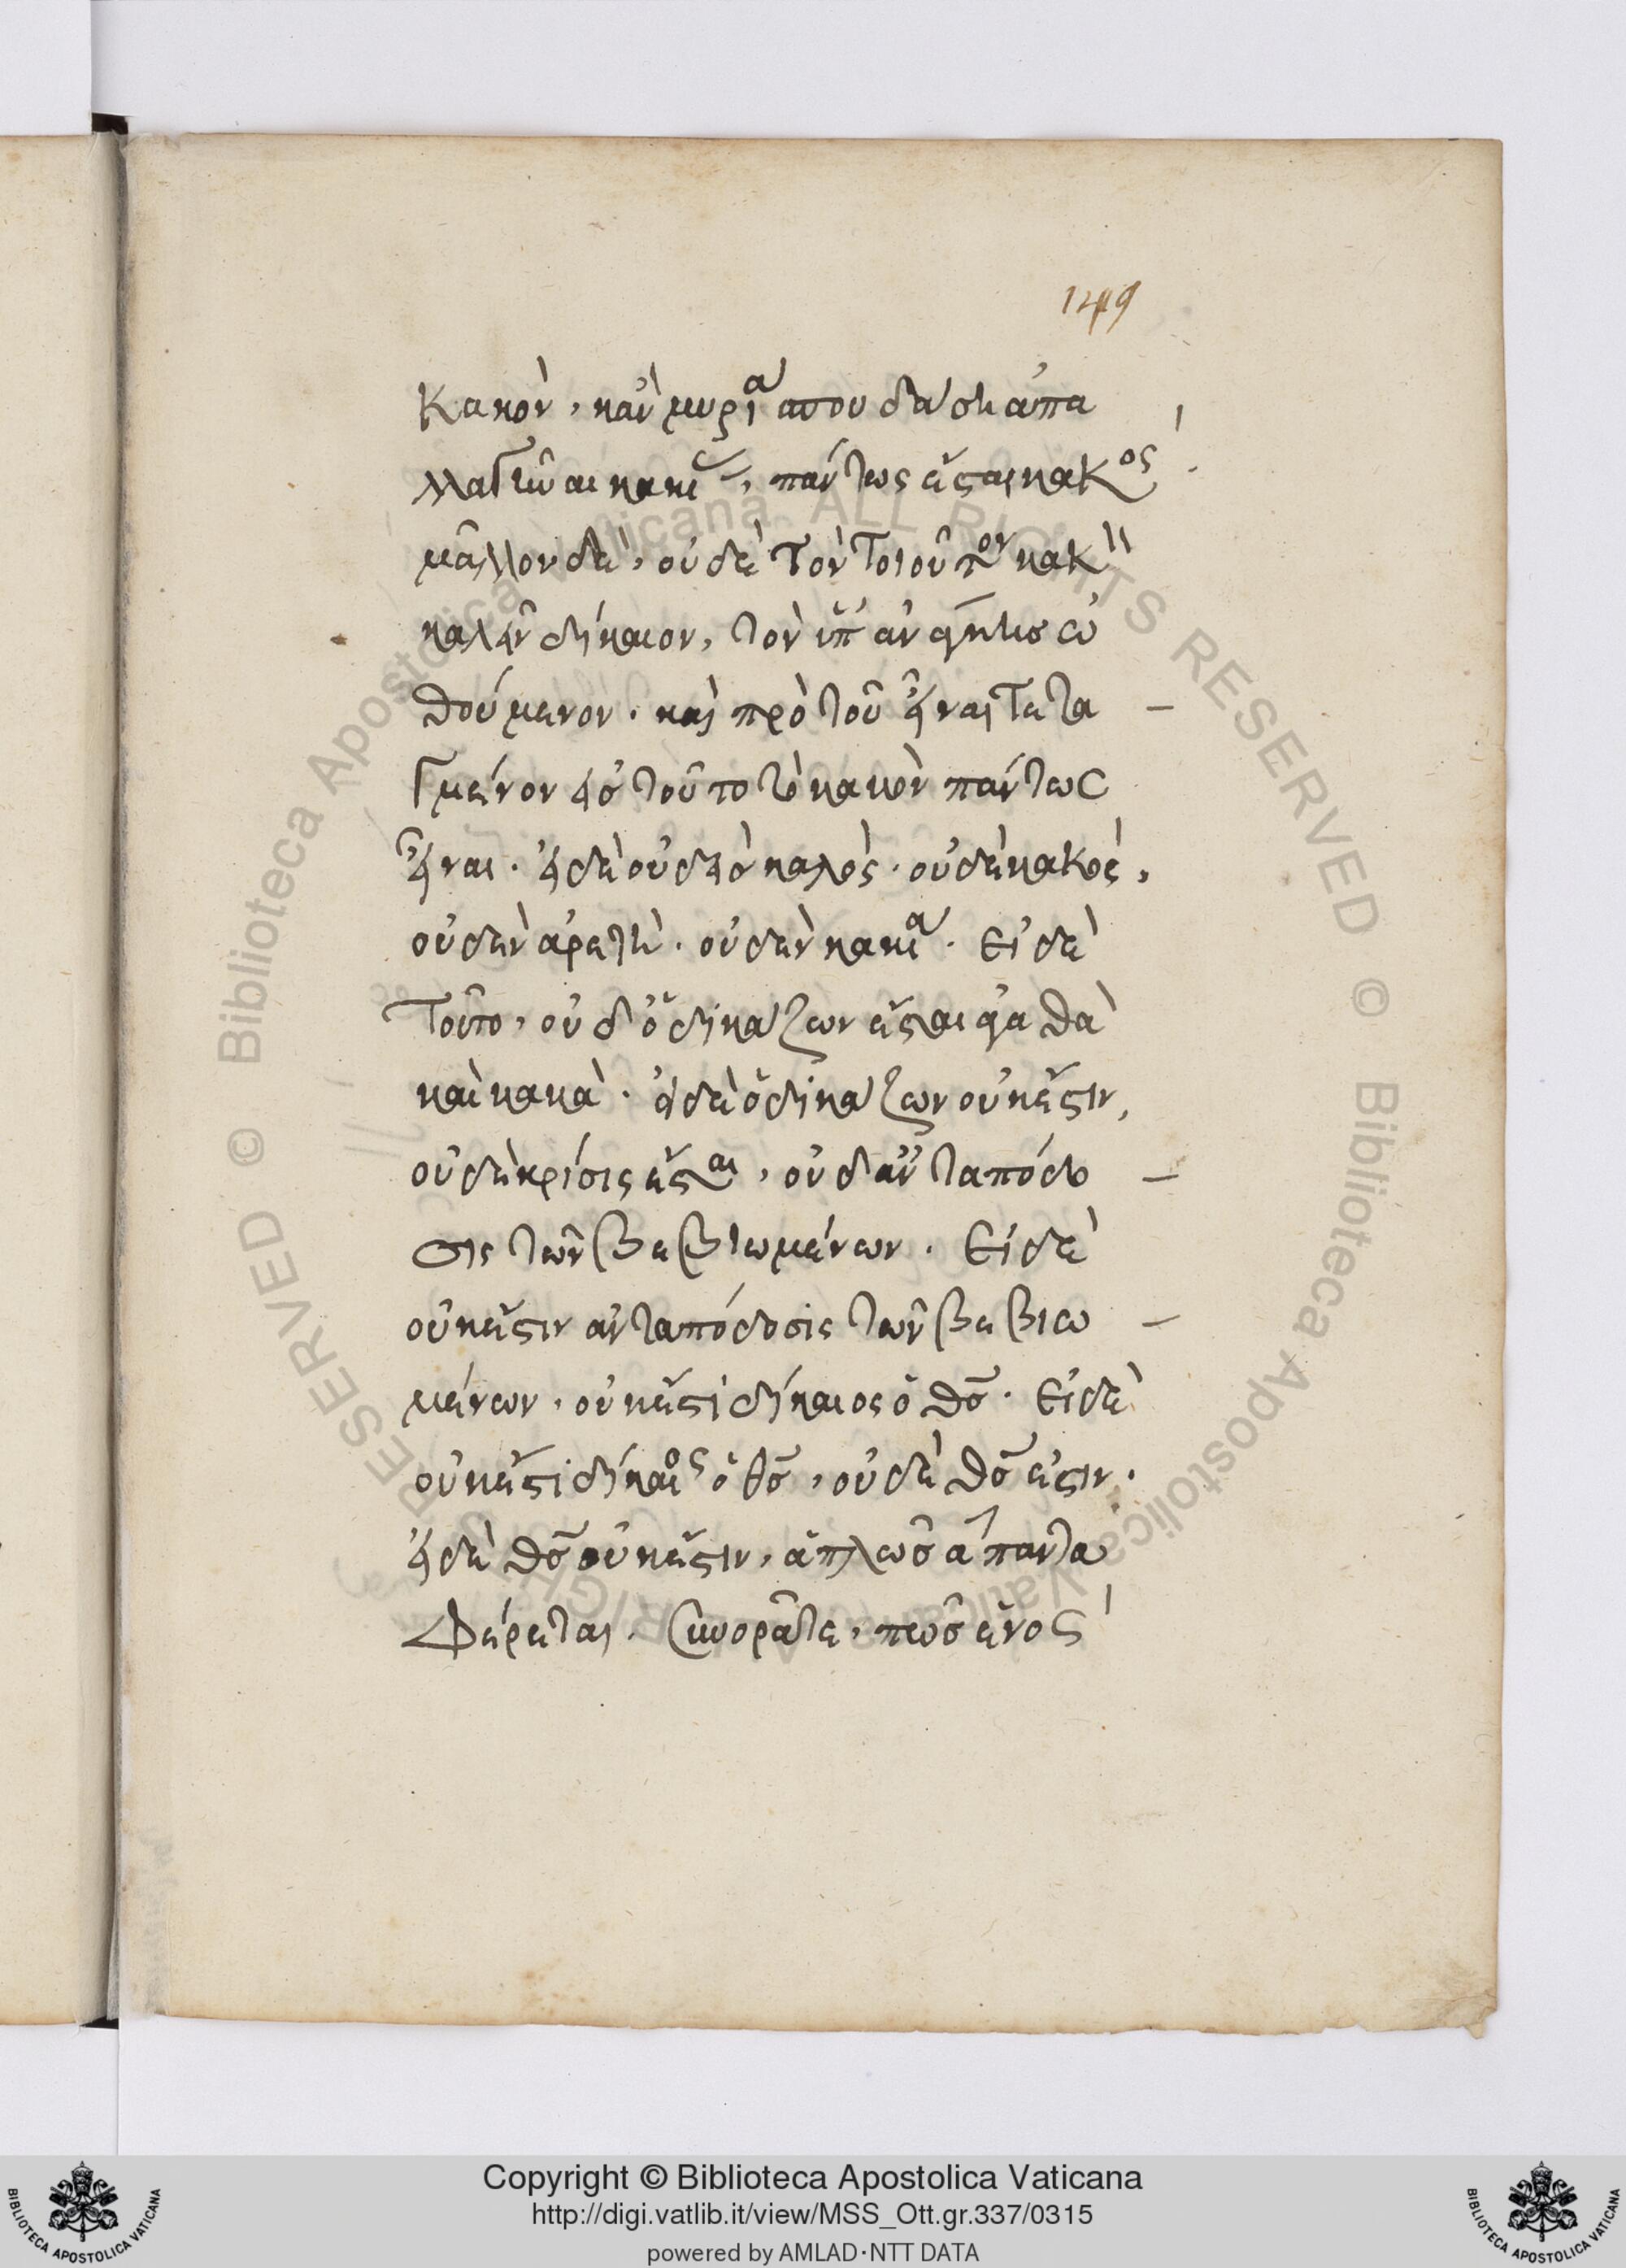 149
κακὸν, κἂν μυρία σπουδάση ἀπα
λλαγῆναι κακί , πάντως ἔσται κακὸς.
μᾶλλον δὲ, οὐδὲ τὸν τοιοῦτον κακὸν
καλεῖν δίκαιον, τὸν ὑπ' ἀνάγκης ὠ
θούμενον. καὶ πρὸ τοῦ εἶναι τετα
γμένον εἰς τοῦτο τὸ κακὸν πάντως
εἶναι. εἰ δὲ οὐδεὶς καλὸς. οὐδὲ κακὸς,
οὐδὲν ἀρετὴ. οὐδὲν κακία. Εἰ δὲ
τοῦτο, οὐδ' ὁ δικάζων ἔσται ἀγαθὰ
καὶ κακὰ. εἰ δὲ ὁ δικάζων οὐκ ἔστιν,
οὐδὲ κρίσις ἔσται, οὐδ' ἀνταπόδο
σις τῶν βεβιωμένων. Εἰ δὲ
οὐκ ἔστιν ἀνταπόδοσις τῶν βεβιω
μένων, οὐκ ἔστι δίκαιος ὁ θς. Εἰ δὲ
οὐκ ἔστι δίκαιος ὁ θς, οὐδὲ θς ἐστιν.
εἰ δὲ θς οὐκ ἔστιν, ἁπλῶς ἅπαντα
φέρεται. Συνορᾶτε, πῶς ἑνὸς
Copyright © Biblioteca Apostolica Vaticana
http://digi.vatlib.it/view/MSS_Ott.gr.337/0315
powered by AMLAD·NTT DATA
BIBLIOTECA APOSTOLICA VATICANA
BIBLIOTECA APOSTOLICA VATICANA
© Biblioteca Apostolica Vaticana ALL RIGHTS RESERVED
© Biblioteca Apostolica Vaticana ALL RIGHTS RESERVED